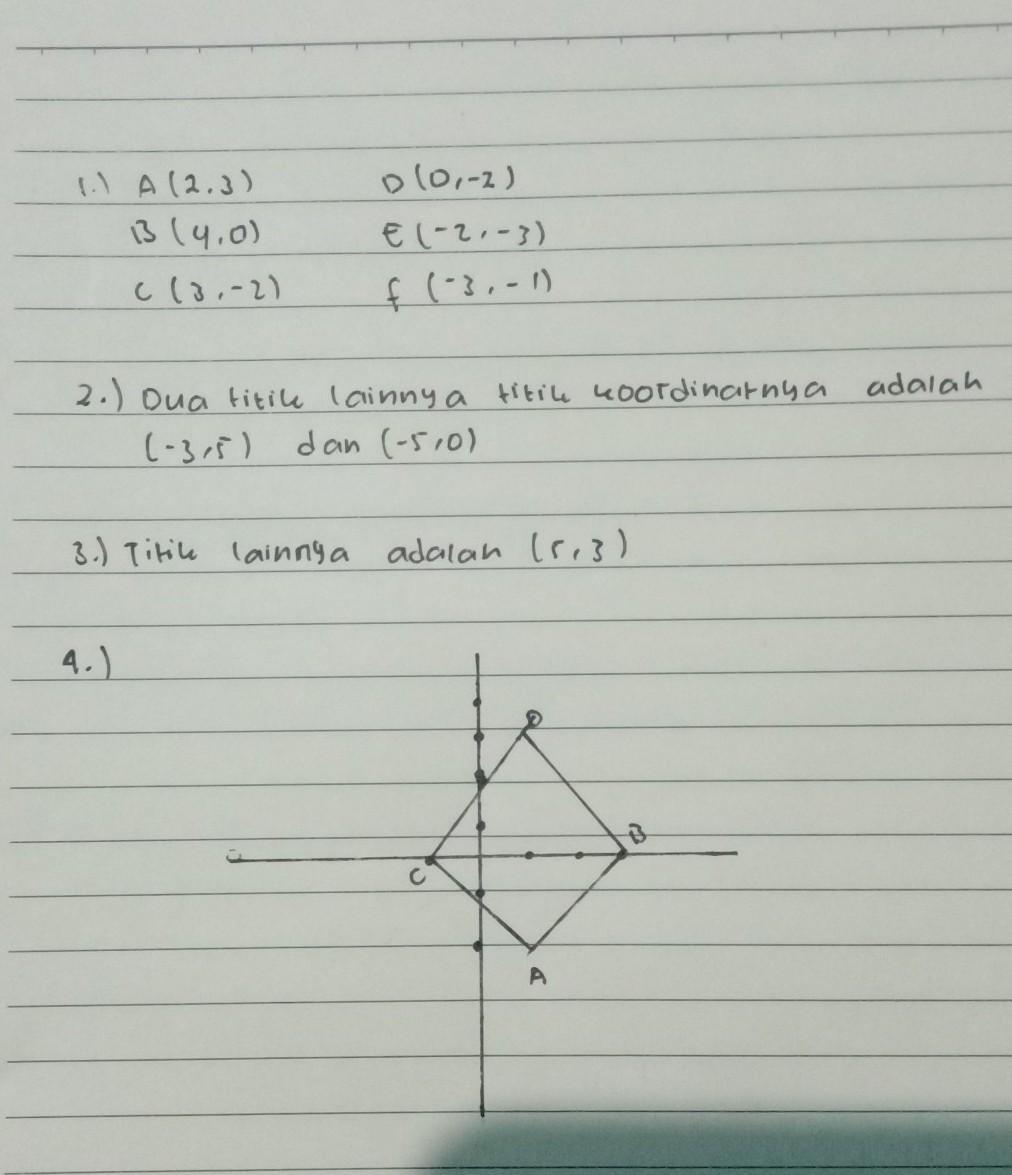 1.) A (2,3) D (0,-2)
B (4,0) E (-2,-3)
C (3,-2) f (-3,-1)
2.) Dua titik lainnya titik koordinatnya adalah
(-3,5) dan (-5,0)
3.) Titik lainnya adalah (5,3)
4.)
D
B
C
A